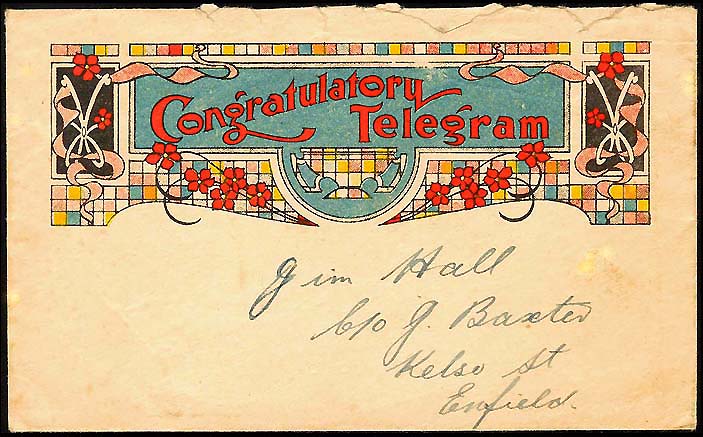 Congratulatory
Telegram
Jim Hall
C/o J. Baxter
Kelso St
Enfield.